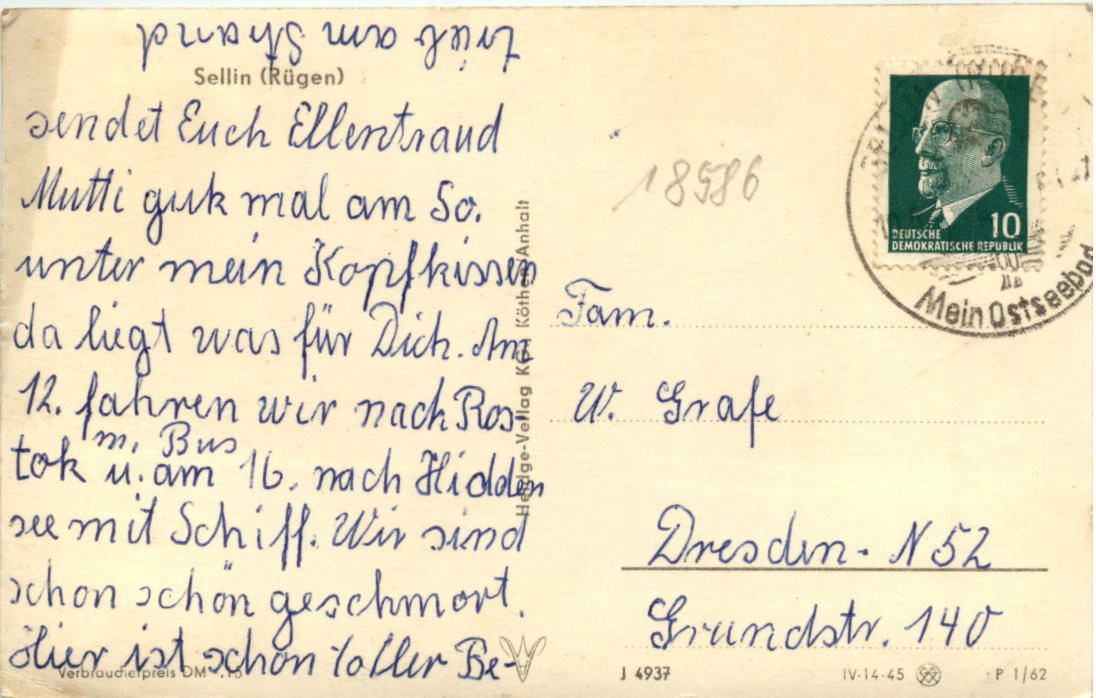 trieb am Strand
Sellin (Rügen)
sendet Euch Ellentraud
Mutti guk mal am So.
unter mein Kopfkissen
da liegt was für Dich. Am
12. fahren wir nach Ros-
m. Bus
tok u. am 16. nach Hidden
see mit Schiff. Wir sind
schon schön geschmort.
Hier ist schon toller Be-
Verbraucherpreis DM
Köthen Anhalt
18586
DEUTSCHE
DEMOKRATISCHE REPUBLIK
10
Mein Ostseebad
Fam.
W. Grafe
Dresden - N 52
Grundstr. 140
J 4937
IV-14-45
P 1/62